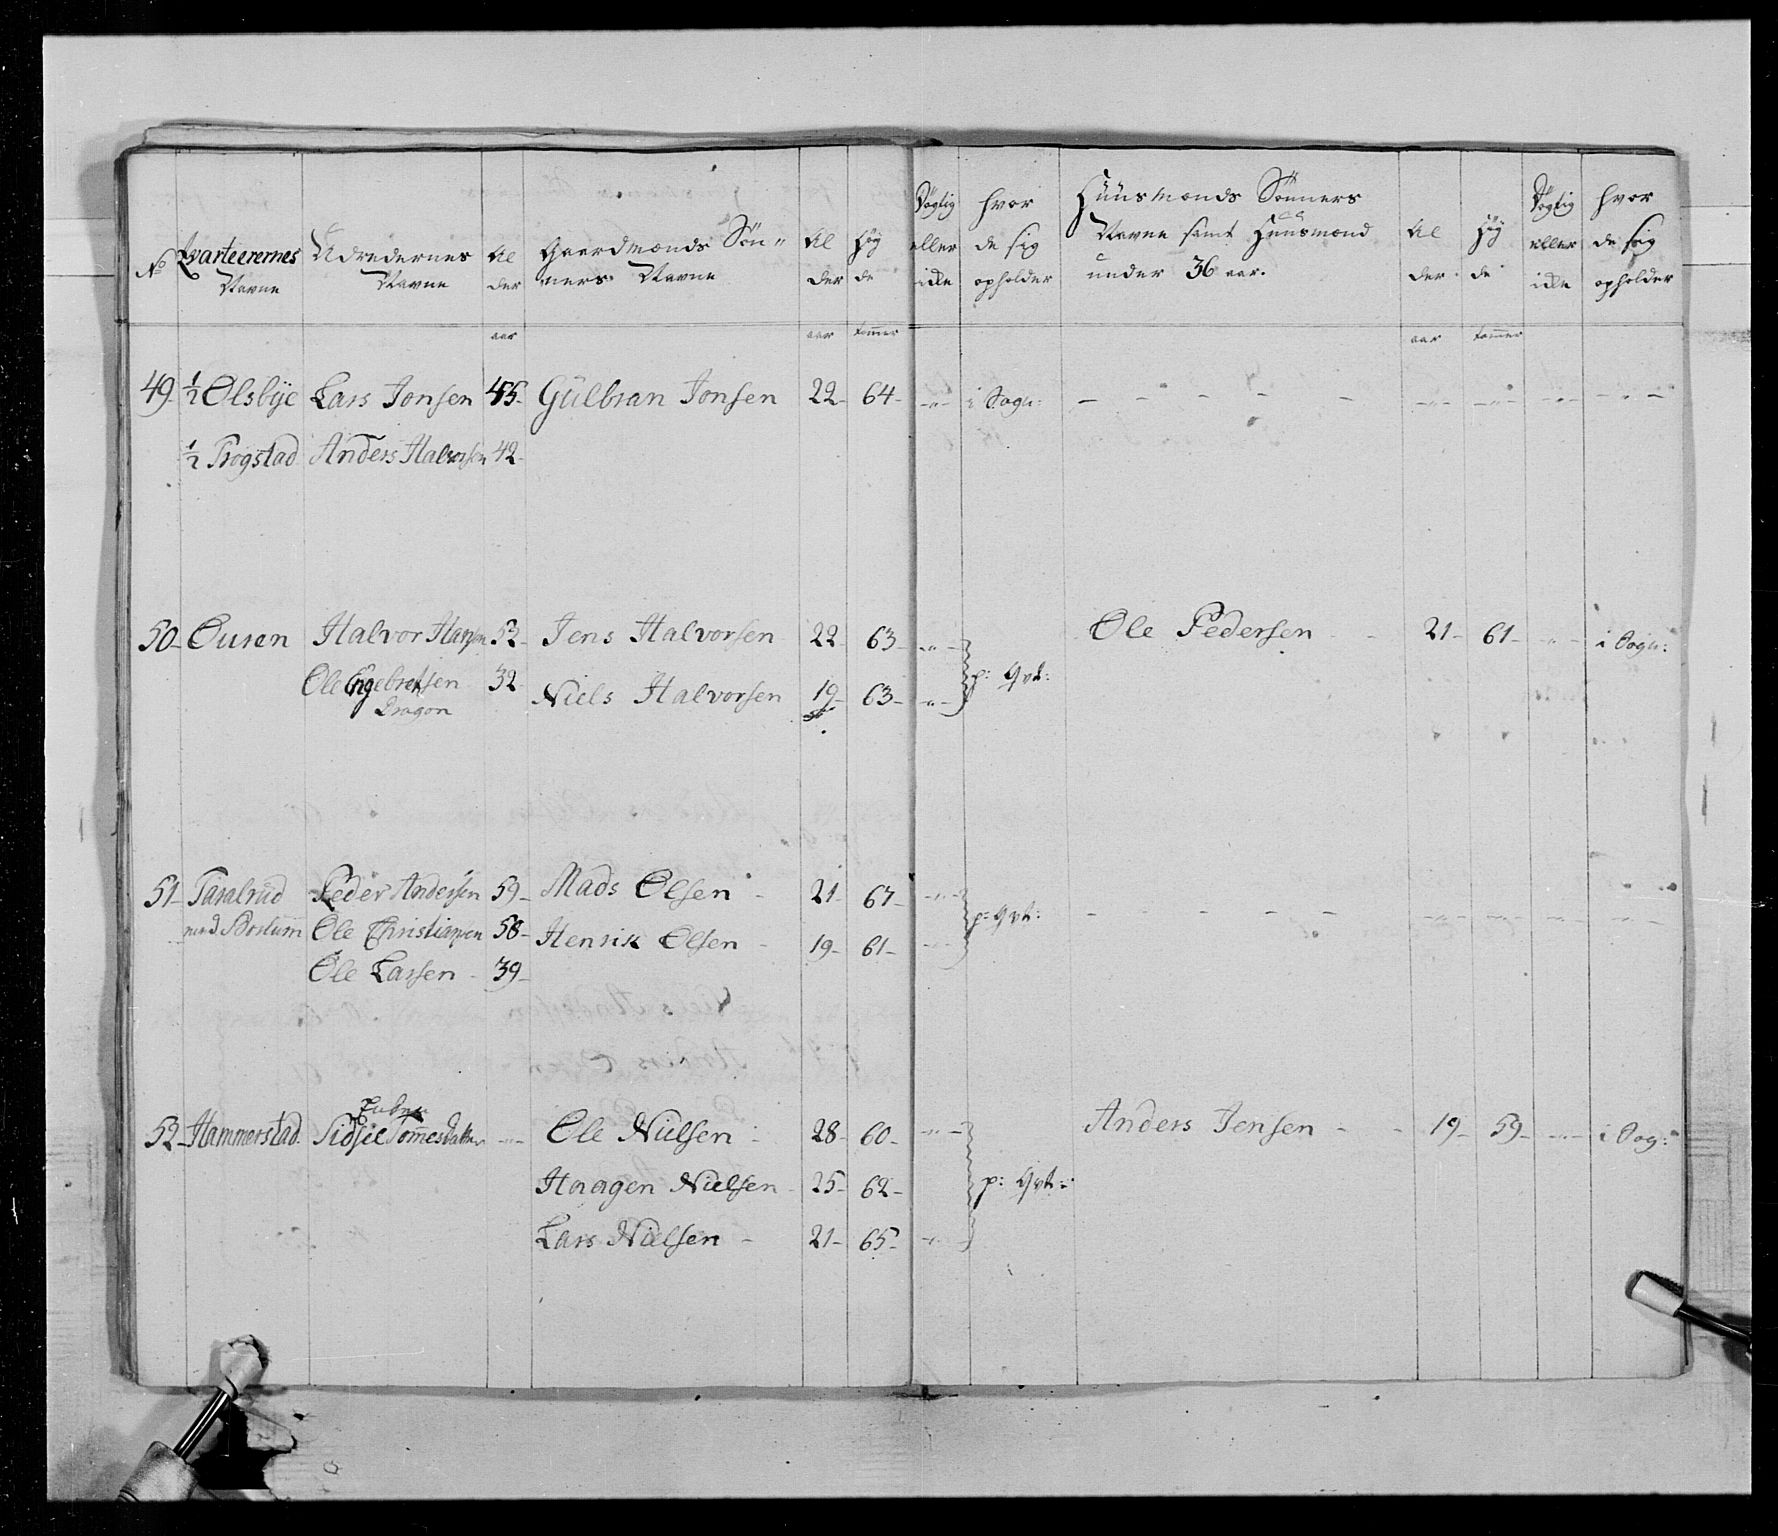 No Qvarteerernes Navne | Udredernes Navne | Al der | Gaardmænds Søn= ners Navne | Al der | Høy de | Døgtig eller ikke | hvor de sig opholder | Huusmænds Sønners Navne samt Huusmænd under 36 aar. | Al der | Høy de | Døgtig eller ikke | hvor de sig opholder
aar | aar | tommer | aar | tommer
49 ½ Ølsbye Lars Jonsen 45 Gulbran Jonsen 22 64 -"- i Sogn: - - - - - -"- -"- -"- -"-
½ Trøgstad Anders Halvorsen 42
50 Ousen Halvor Hansen 52 Jens Halvorsen 22 63 -"- Ole Pedersen 21 61 -"- i Sogn:
Ole Engebretsen 32 Niels Halvorsen 19 63 -"- p: Qvt:
Dragon
51 Taralrud Peder Andersen 59 Mads Olsen 21 67 -"- p: Qvt: - - - - - -"- -"- -"- -"-
med Ole Christiansen 58 Henrik Olsen 19 61 -"-
Ole Larsen 39
Enken
52 Hammerstad Sidsel Tommesdatter -"- Ole Nielsen 28 60 -"- Anders Jensen 19 59 -"- i Sog:
Haagen Nielsen 25 62 p: Qvt:
Lars Nielsen 21 65 -"-